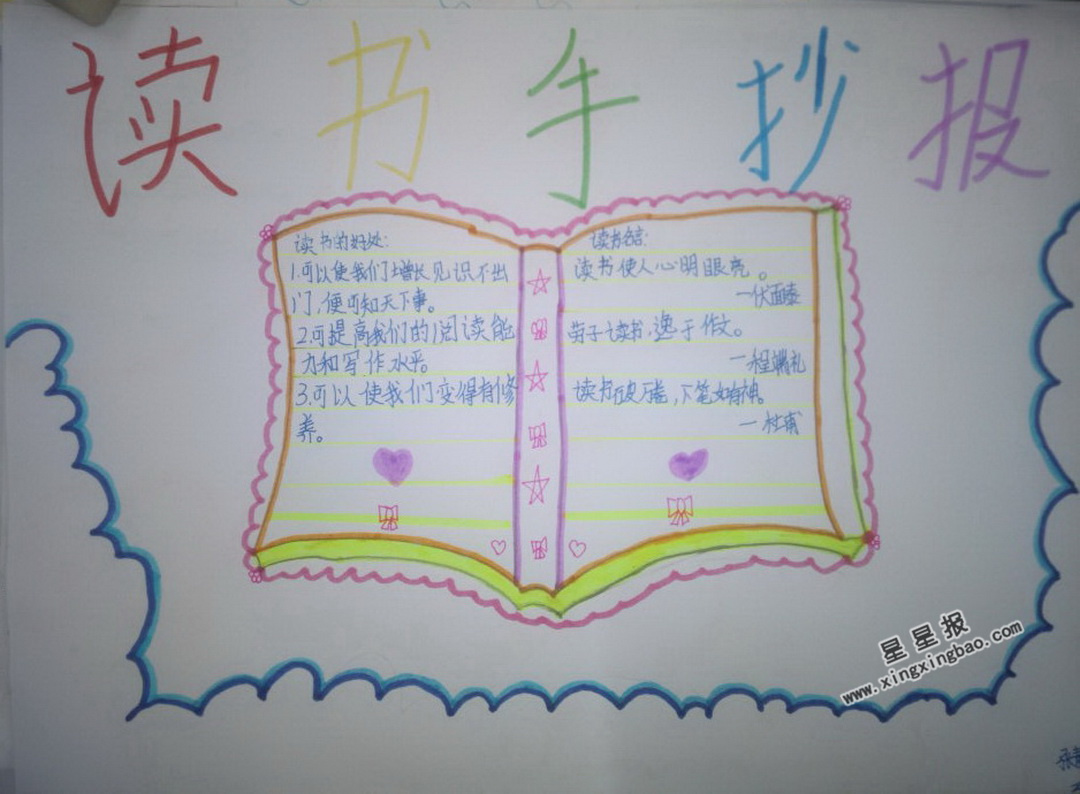 读书手抄报
读书的好处:
1.可以使我们增长见识不出
门,便可知天下事。
2.可提高我们的阅读能
力和写作水平。
3.可以使我们变得有修
养。
读书名言:
读书使人心明眼亮。
一伏尔泰
劳于读书,逸于作文。
一程端礼
读书破万卷,下笔如有神。
一杜甫
星星报
www.xingxingbao.com
张